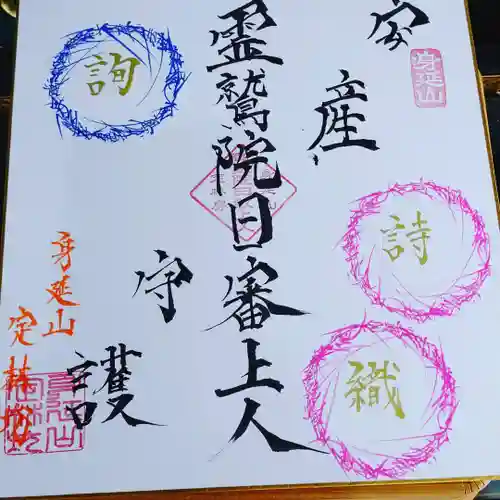 安産
身延山
霊鷲院日審上人
守護
詢
詩
織
身延山
定林坊